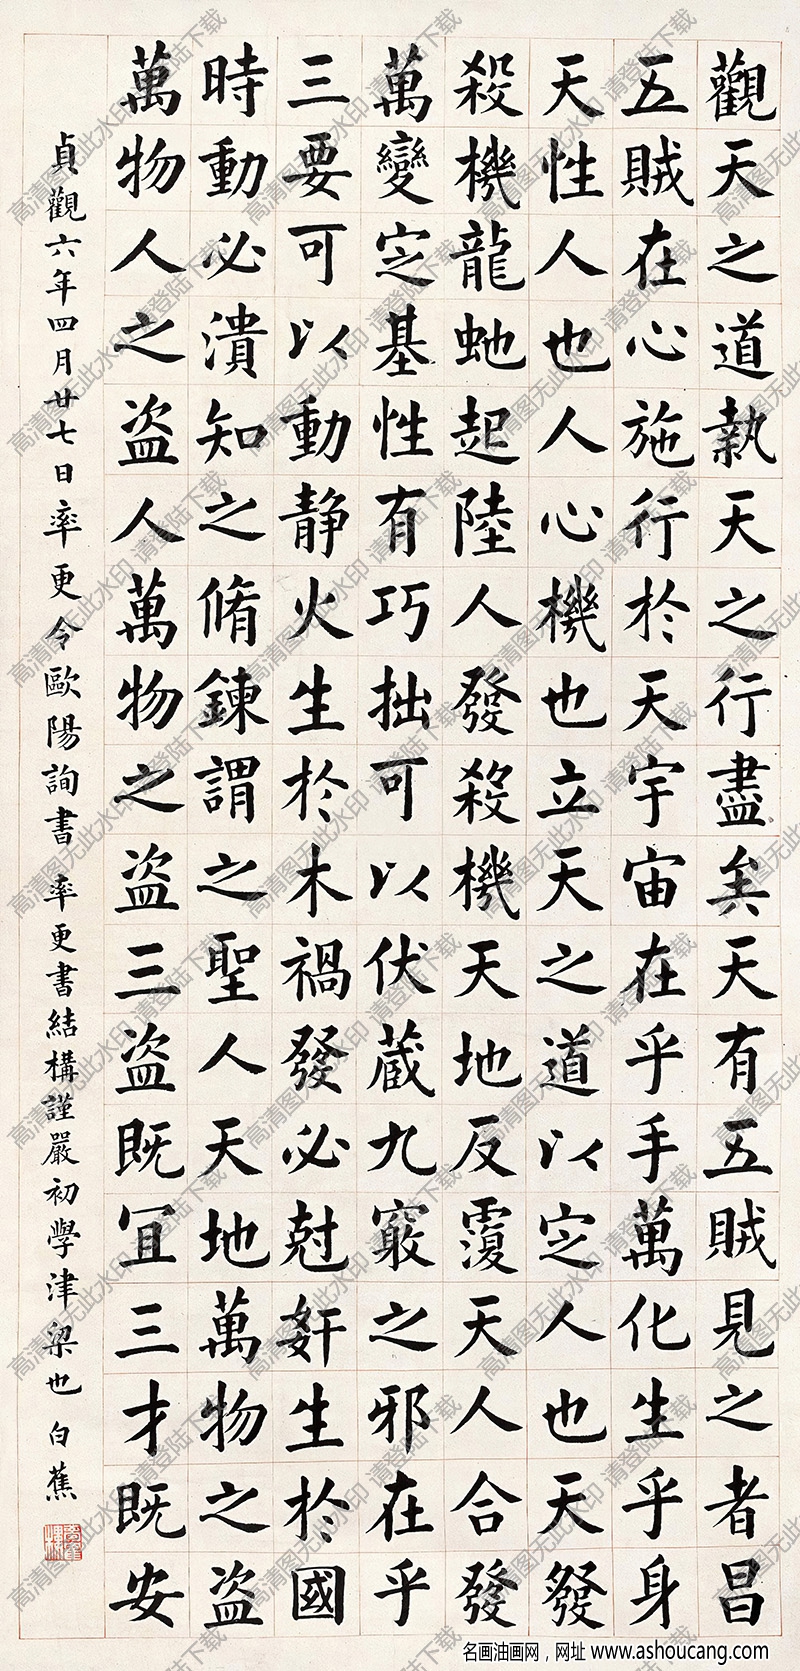 觀天之道執天之行盡矣天有五賊見之者昌
五賊在心施行於天宇宙在乎手萬化生乎身
天性人也人心機也立天之道以㝎人也天發
殺機龍虵起陸人發殺機天地反覆天人合發
萬變㝎基性有巧拙可以伏蔵九竅之邪在乎
三要可以動静火生於木禍發必尅奸生於國
時動必潰知之脩鍊謂之聖人天地萬物之盜
萬物人之盜人萬物之盜三盜既冝三才既安
貞觀六年四月廿七日率更令歐陽詢書 率更書結構謹嚴初學津梁也 白蕉
高清图无此水印 请登陆下载
名画油画网，网址 www.ashoucang.com